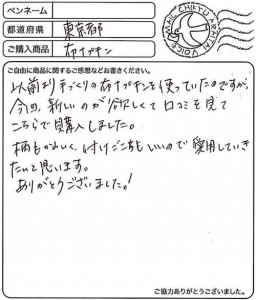 ペンネーム
都道府県 東京都
ご購入商品 布ナプキン
CHIEYU ARMEN VOICE MAIL
ご自由に商品に関するご感想などお書きください。
以前より手づくりの布ナプキンを使っていたのですが、
今回、新しいのが欲しくて口コミを見て
こちらで購入しました。
柄もかわいく、付けごこちもいいので愛用していき
たいと思います。
ありがとうございました!
ご協力ありがとうございました。